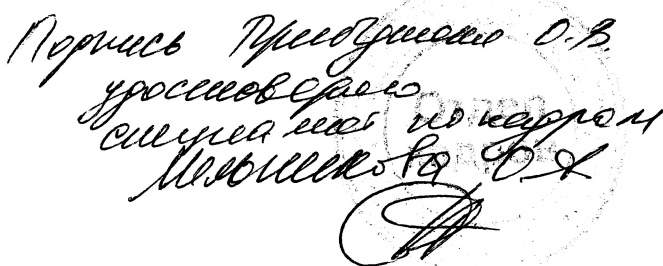 Подпись О.В.
удостоверяю
специалист по кадрам
Мельникова